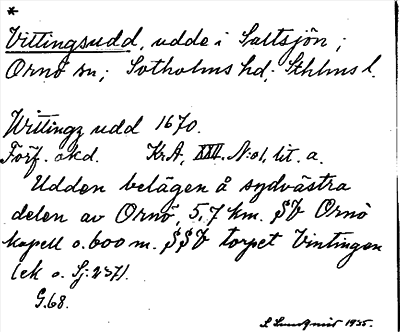 *
Vittingsudd, udde i Saltsjön;
Ornö sn; Sotholms hd; Sthlms l.
Wittingz udd 1670.
Förf. okd. KrA, XXII. N:o 1, lit. a.
Udden belägen å sydvästra
delen av Ornö, 5,7 km. SV Ornö
kapell o. 600 m. SSV torpet Vintingen
(ek o. Sj: 237).
G.68.
1935.